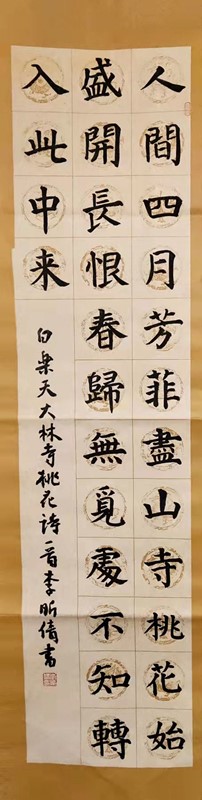 人間四月芳菲盡山寺桃花始
盛開長恨春歸無覓處不知轉
入此中来
白樂天大林寺桃花詩一首李昕倩書